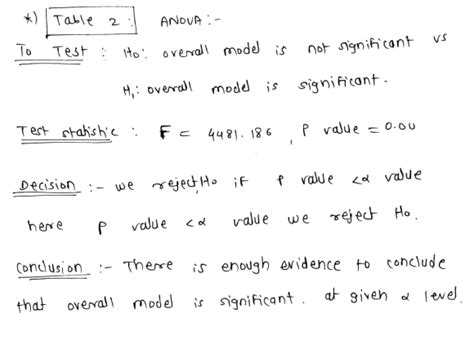 *) Table 2 : ANOVA :-
To Test : Ho: overall model is not significant vs
H1: overall model is significant.
Test statistic : F = 4481.186 , P value = 0.00
Decision :- we reject, Ho if P value <α value
here P value <α value we reject Ho.
Conclusion :- There is enough evidence to conclude
that overall model is significant. at given α level.